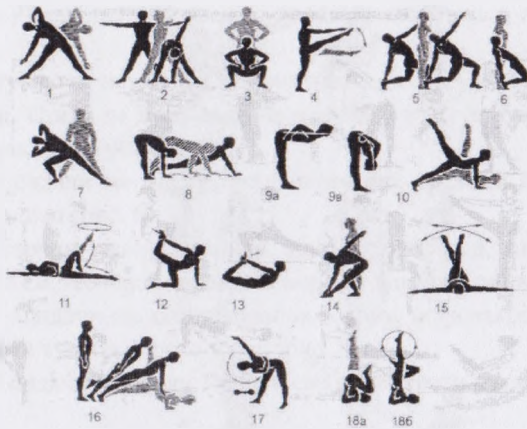 1 2 3 4 5 6
7 8 9а 9в 10
11 12 13 14 15
16 17 18а 18б